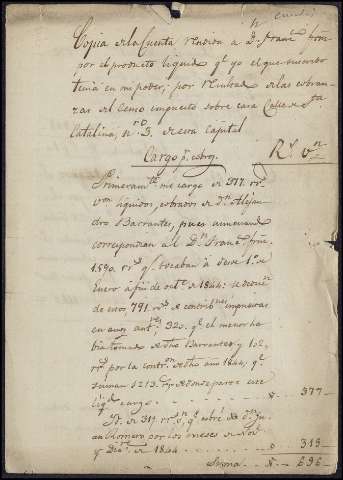 Copia de la Cuenta rendida a D. Franco
por el producto liquido qe yo el que suscribo
tenia en mi poder, por resultas de las cobran-
zas del Censo impuesto sobre casa Calle de Sta
Catalina, no 3. de esta Capital
Cargo pr cobros Rs vn
Primeramte me cargo de 377 rrs
von liquidos, cobrados de Dn Alejan-
dro Barrantes, pues aunque
correspondian al Dn Franco
1590. rrs qe tocaban à desde 1o de
Enero à fin de octe de 1844: se dedu
de estos, 791 rrs de contribnes impuestas
en años antes, 320. qe el menor ha-
bia tomado de dho Barrantes y 102
rrs por la contron de dho año 1844; qe
suman 1213. de donde parece este
liqdo cargo 377
Yt. de 319 rrs vn qe cobré de Dn Ju-
an Romero por los meses de Nove
y Dice de 1844 319
Suma 696